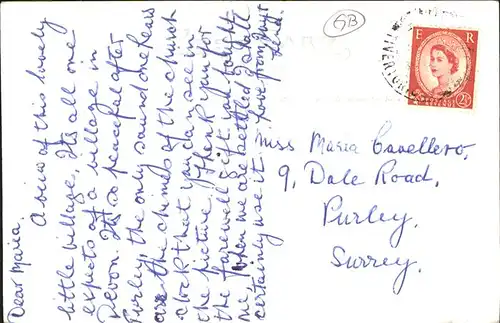 Dear Maria.
A view of this lovely
little village. Its all one
expects of a village in
Devon. Its so peaceful after
Purley, the only sound one hears
are the chimes of the church
clock that you can see in
the picture. Thank you for
the farewell gift you bought
me, when we are settled I shall
certainly use it. Love from Daisy
GB
E R
2½D
Miss Maria Cavellero,
9, Dale Road,
Purley,
Surrey.